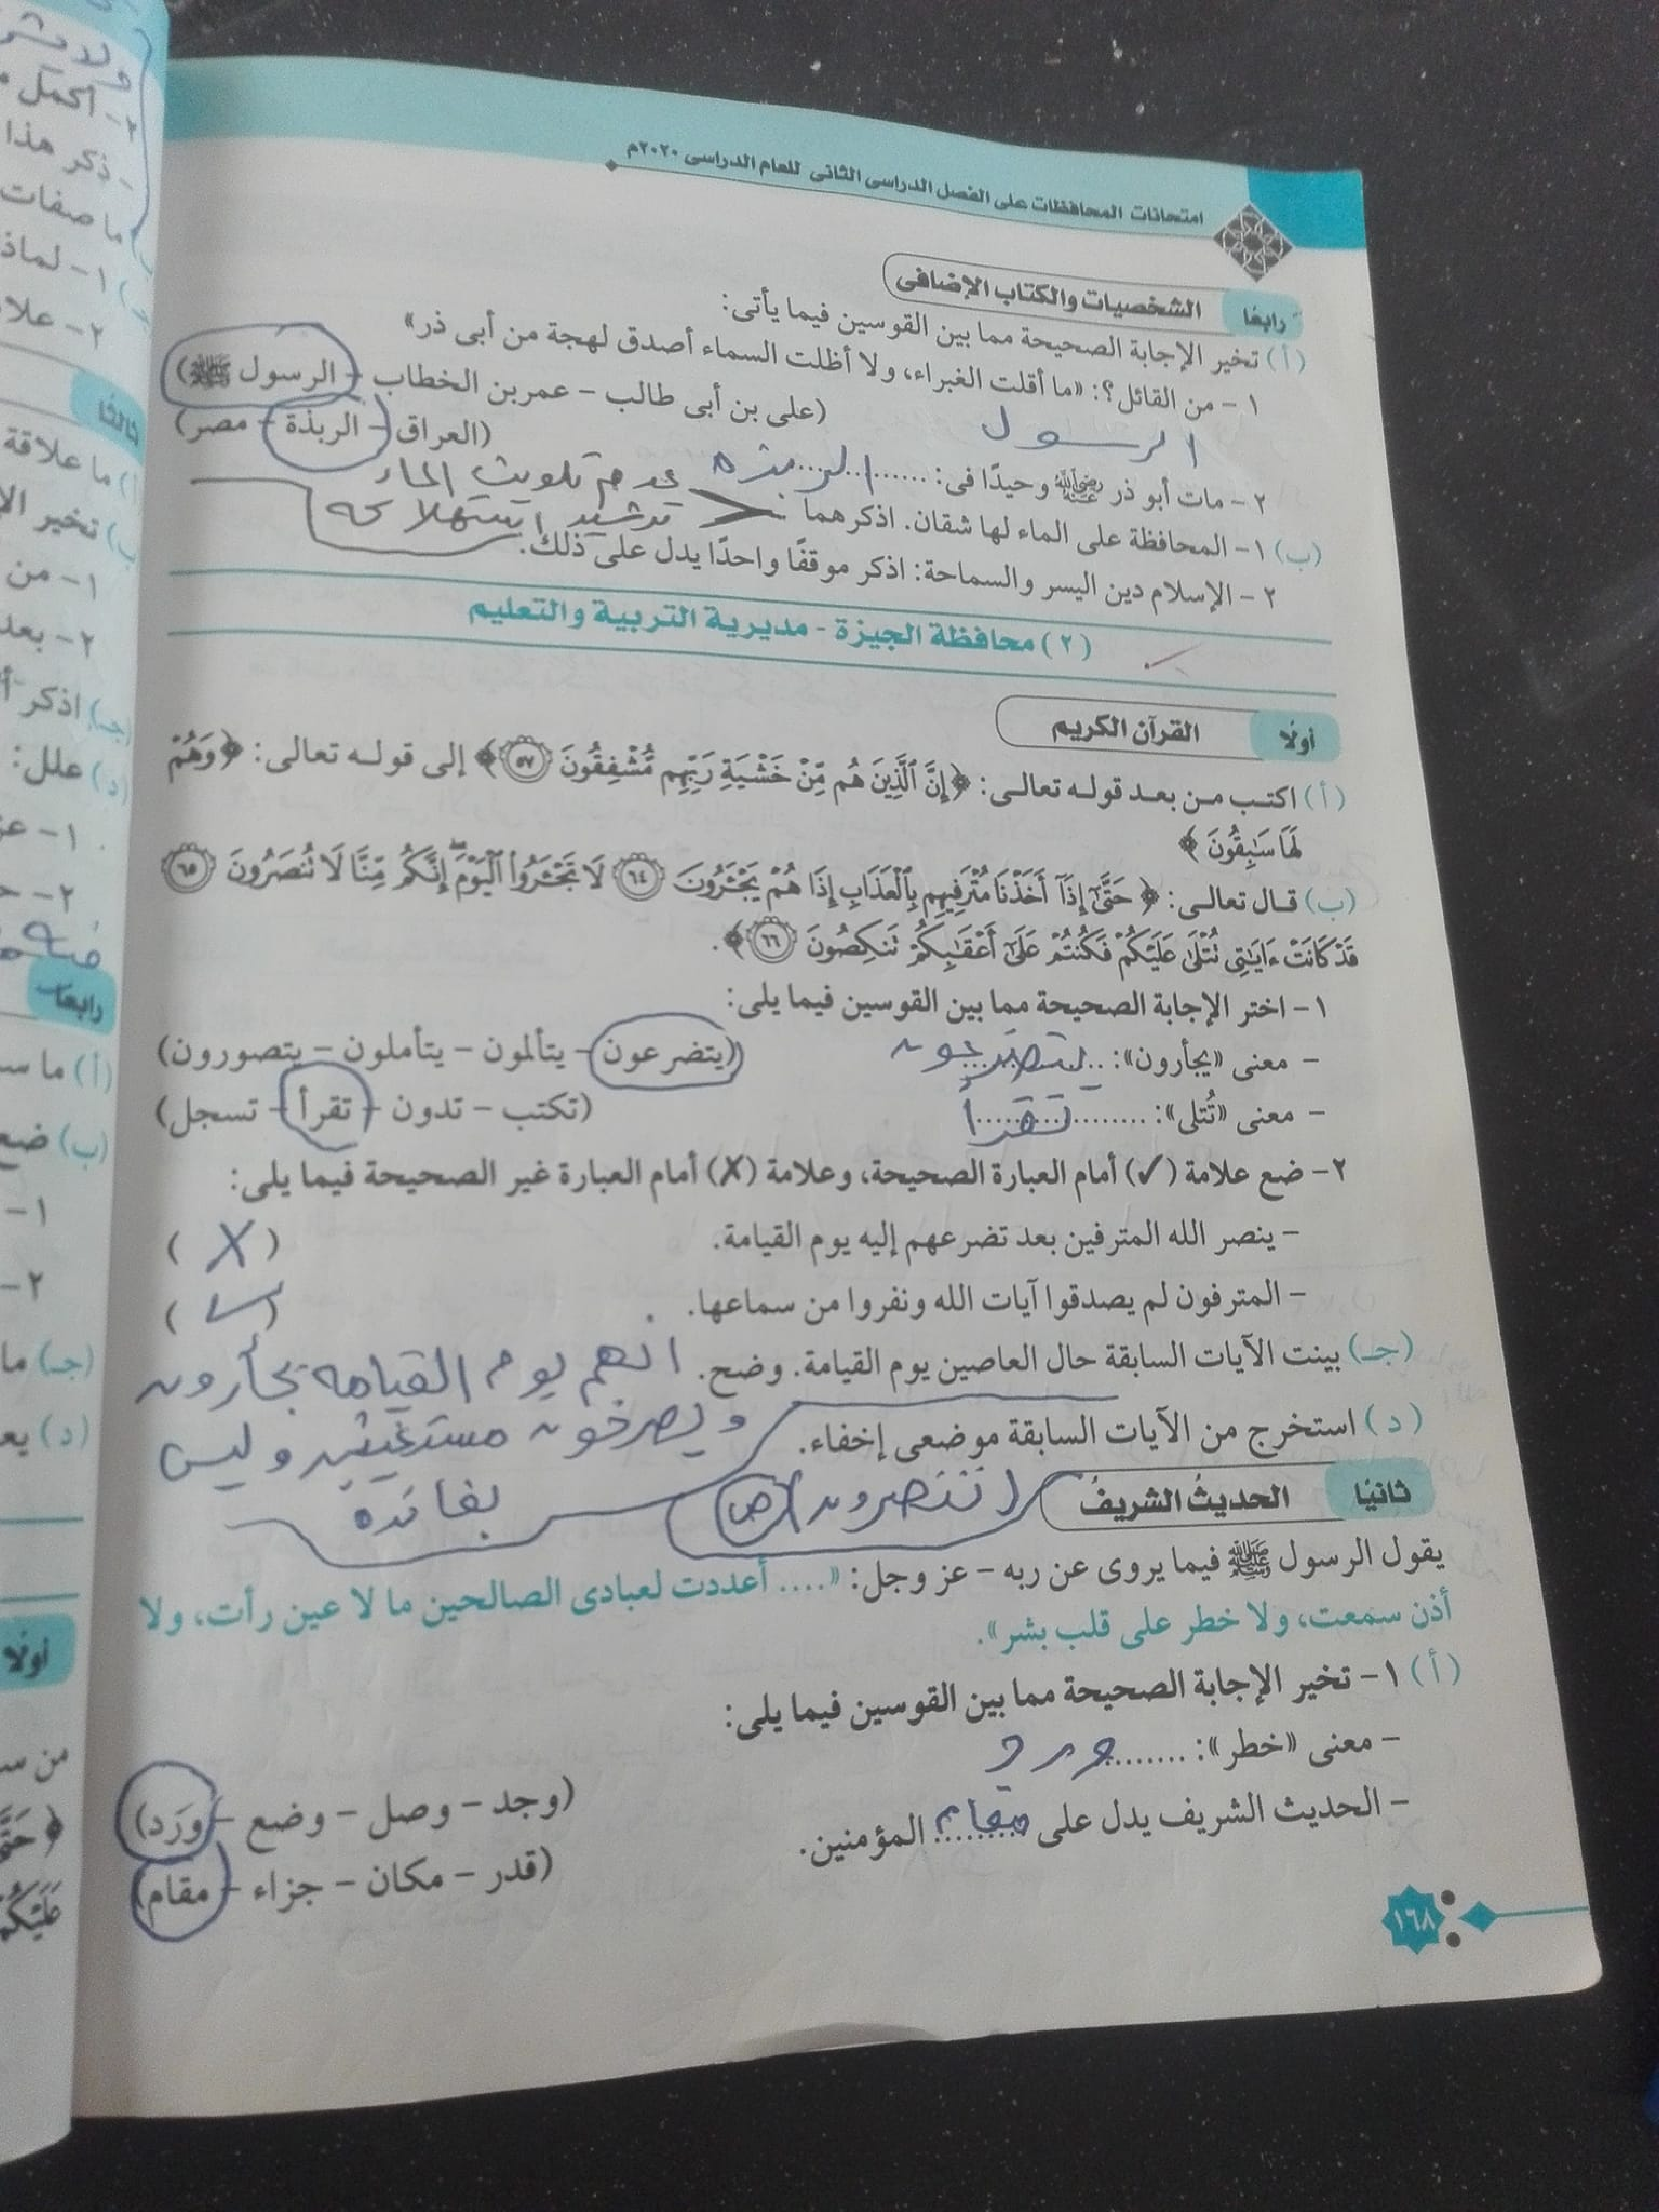 امتحانات المحافظات على الفصل الدراسى الثانى للعام الدراسى ٢٠٢٠م
رابعًا الشخصيات والكتاب الإضافى
(أ) تخير الإجابة الصحيحة مما بين القوسين فيما يأتى:
١ - من القائل؟: «ما أقلت الغبراء، ولا أظلت السماء أصدق لهجة من أبى ذر»
(على بن أبى طالب - عمر بن الخطاب - الرسول ﷺ)
الرسول
٢ - مات أبو ذر رضي الله عنه وحيدًا فى: .......الربذه
(العراق - الربذة - مصر)
(ب) ١ - المحافظة على الماء لها شقان. اذكرهما
عدم تلويث الماء
ترشيد استهلاكه
٢ - الإسلام دين اليسر والسماحة: اذكر موقفًا واحدًا يدل على ذلك.
(٢) محافظة الجيزة - مديرية التربية والتعليم
أولًا القرآن الكريم
(أ) اكتب من بعد قوله تعالى: ﴿إِنَّ ٱلَّذِينَ هُم مِّنْ خَشْيَةِ رَبِّهِم مُّشْفِقُونَ ٥٧﴾ إلى قوله تعالى: ﴿وَهُمْ
لَهَا سَٰبِقُونَ﴾
(ب) قال تعالى: ﴿حَتَّىٰٓ إِذَآ أَخَذْنَا مُتْرَفِيهِم بِٱلْعَذَابِ إِذَا هُمْ يَجْـَٔرُونَ ٦٤ لَا تَجْـَٔرُوا۟ ٱلْيَوْمَ ۖ إِنَّكُم مِّنَّا لَا تُنصَرُونَ ٦٥
قَدْ كَانَتْ ءَايَٰتِى تُتْلَىٰ عَلَيْكُمْ فَكُنتُمْ عَلَىٰٓ أَعْقَٰبِكُمْ تَنكِصُونَ ٦٦﴾.
١ - اختر الإجابة الصحيحة مما بين القوسين فيما يلى:
- معنى «يجأرون»: يتضرعون (يتضرعون - يتألمون - يتأملون - يتصورون)
- معنى «تُتلى»: ........تقرأ (تكتب - تدون - تقرأ - تسجل)
٢ - ضع علامة (✓) أمام العبارة الصحيحة، وعلامة (✗) أمام العبارة غير الصحيحة فيما يلى:
- ينصر الله المترفين بعد تضرعهم إليه يوم القيامة. (✗)
- المترفون لم يصدقوا آيات الله ونفروا من سماعها. (✓)
(جـ) بينت الآيات السابقة حال العاصين يوم القيامة. وضح. انهم يوم القيامه يجأرون
ويصرخون مستغيثين وليس
بفائده
(د) استخرج من الآيات السابقة موضعى إخفاء.
(تنصرون) (ص)
ثانيًا الحديث الشريف
يقول الرسول ﷺ فيما يروى عن ربه - عز وجل: «.... أعددت لعبادى الصالحين ما لا عين رأت، ولا
أذن سمعت، ولا خطر على قلب بشر».
(أ) ١ - تخير الإجابة الصحيحة مما بين القوسين فيما يلى:
- معنى «خطر»: .......ورد (وجد - وصل - وضع - وَرَد)
- الحديث الشريف يدل على مقام المؤمنين. (قدر - مكان - جزاء - مقام)
١٦٨
ولا يشر
٢ - أكمل
- ذكر هذا
ما صفات
١ - لماذ
٢ - علا
ثالثًا
(أ) ما علاقة
(ب) تخير الإ
١ - من
٢ - بعد
(جـ) اذكر أ
(د) علل:
١ - عز
٢ - ح
رابعًا
(أ) ما سـ
(ب) ضع
١ -
٢ -
(جـ) ما
(د) يع
أولًا
من سـ
﴿حَتَّ
عَلَيْكُم